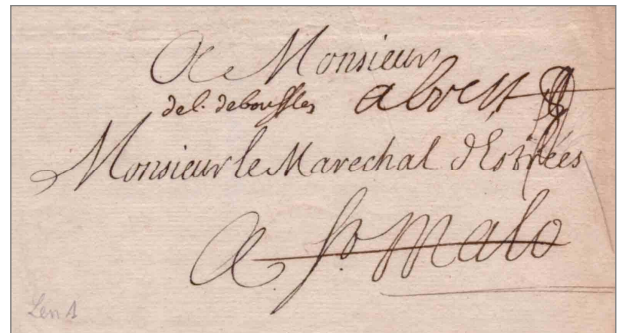 A Monsieur
de L. de boufles a brest
Monsieur le Marechal d'Estrées
A St. Malo
Len 1